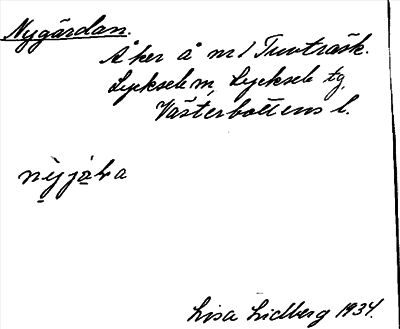 Nygårdan.
Åker å n:r 1 Tuvträsk.
Lycksele m, Lycksele tg,
Västerbottens l.
Lisa Lidberg 1934.